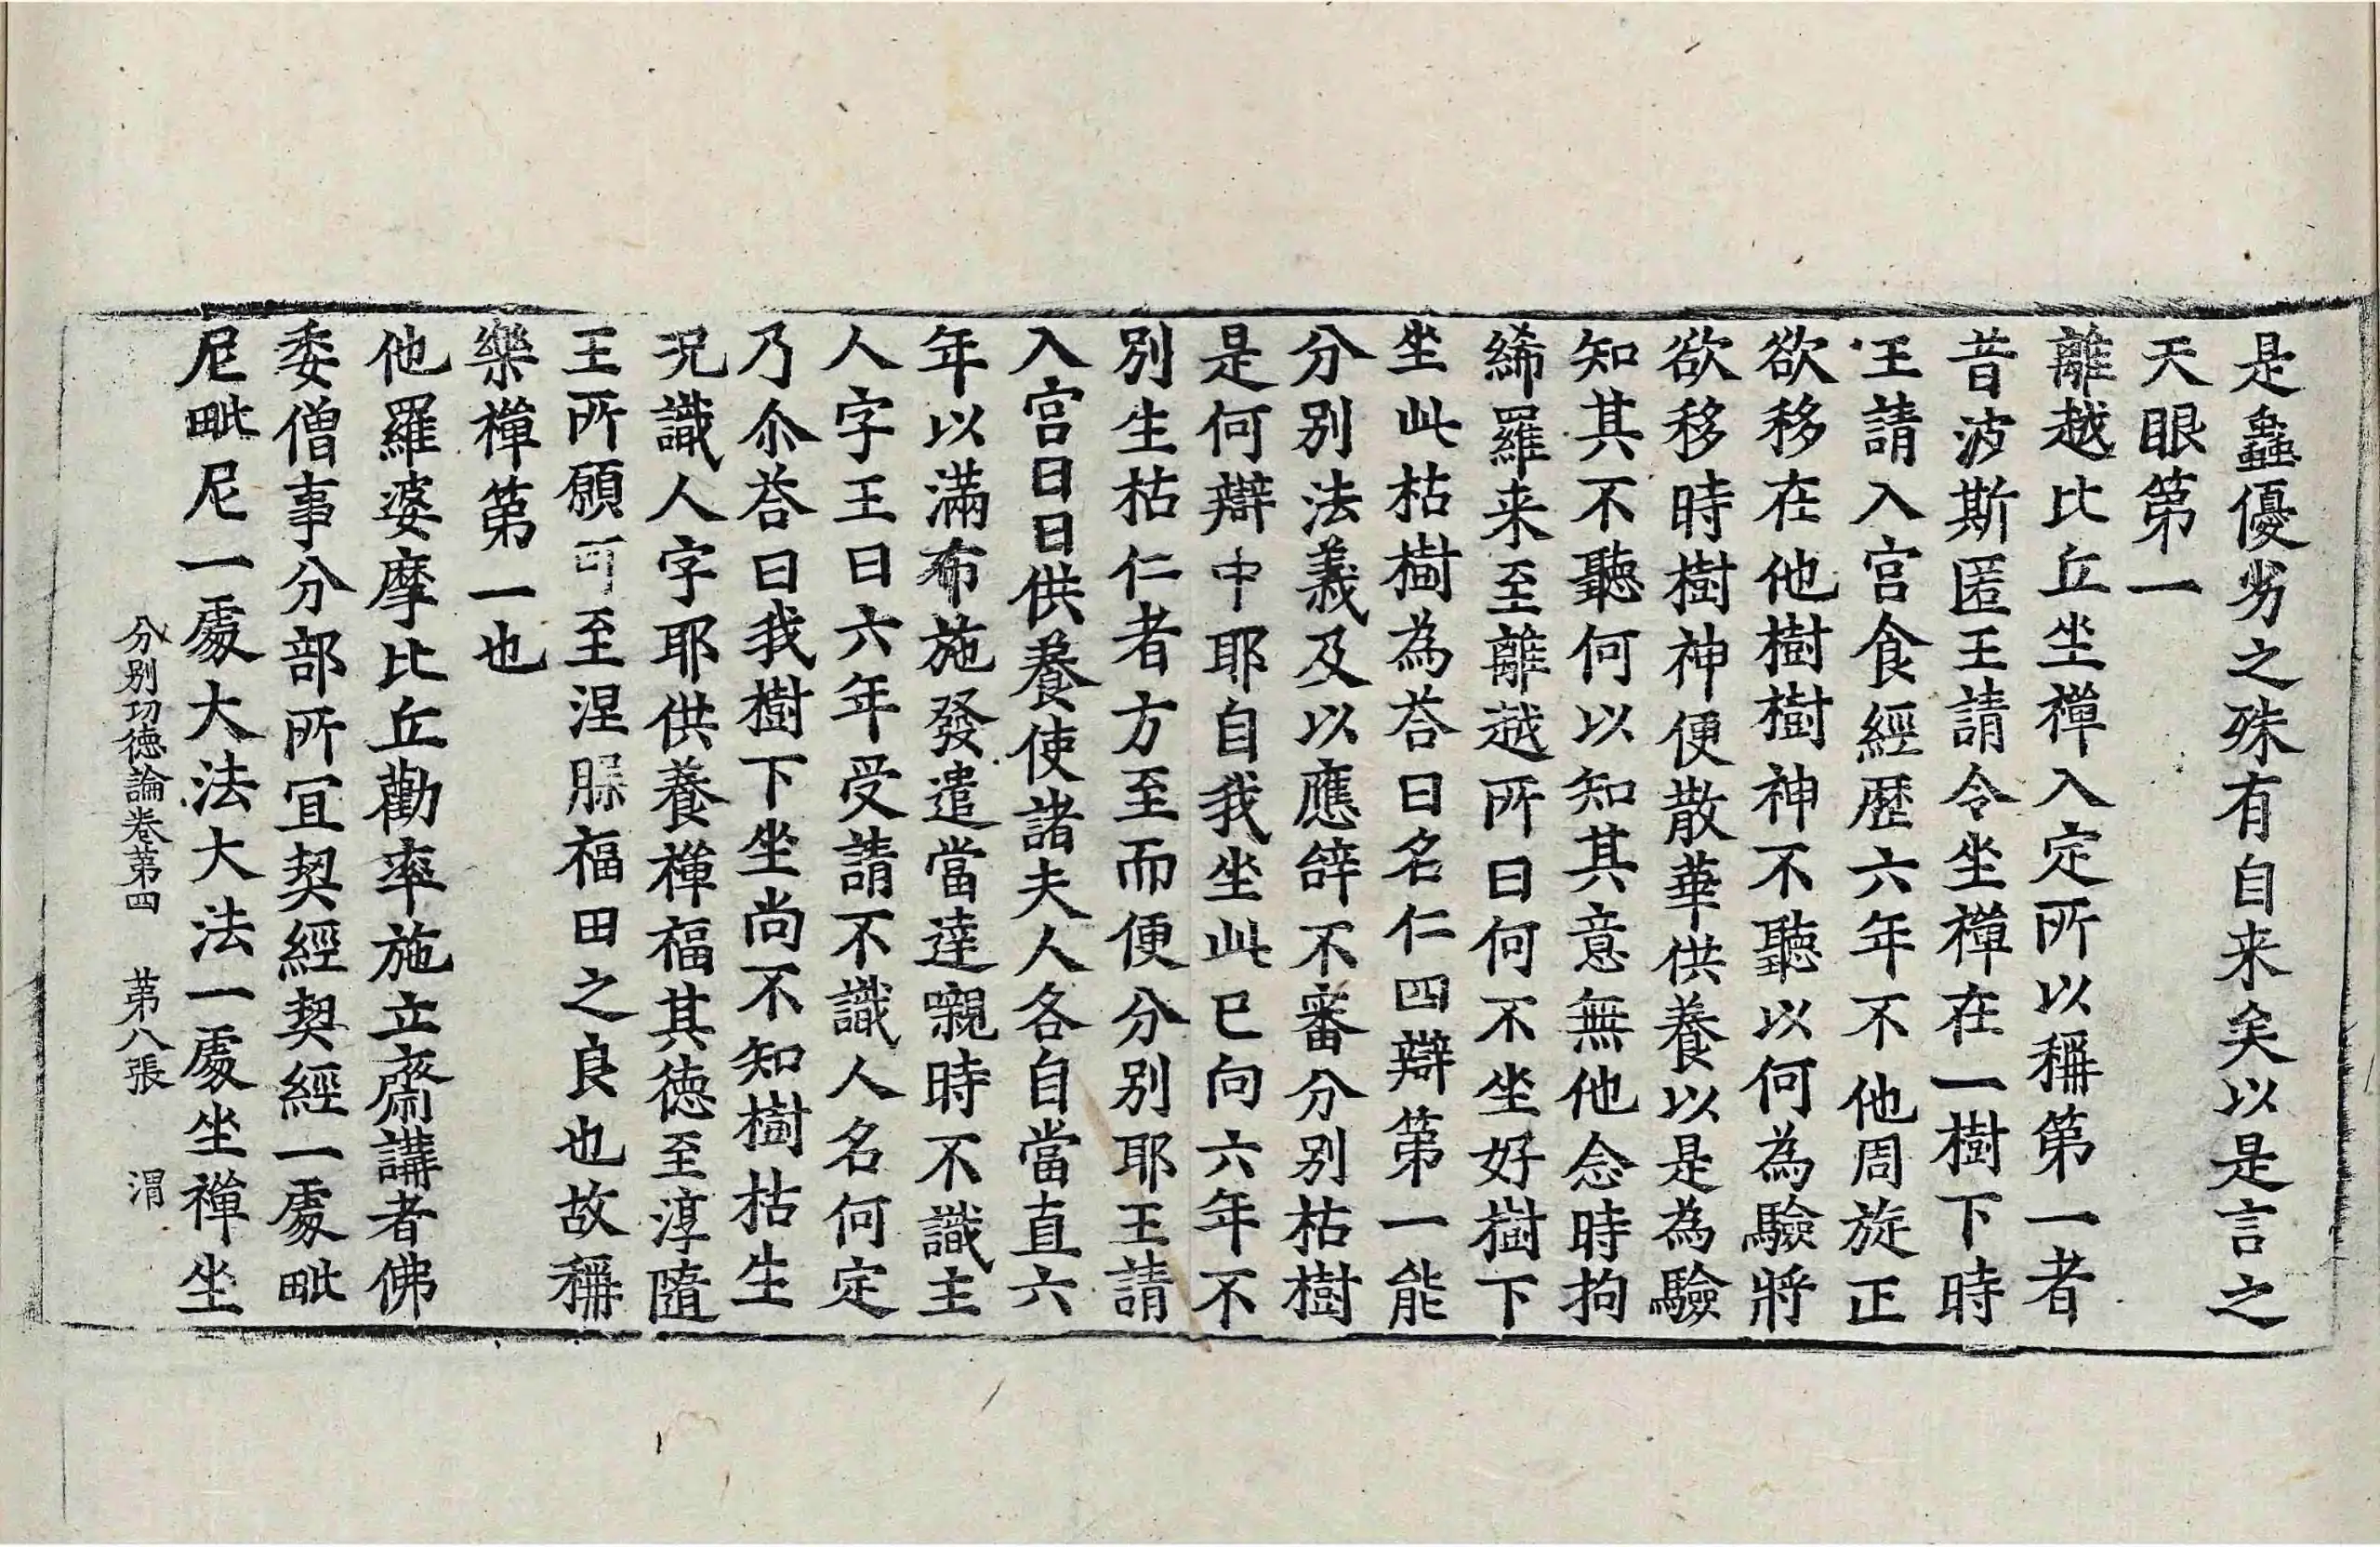 是麤優劣之殊有自来矣以是言之
天眼第一
離越比丘坐禪入定所以稱第一者
昔波斯匿王請令坐禪在一樹下時
王請入宫食經歷六年不他周旋正
欲移在他樹樹神不聽以何為驗將
欲移時樹神便散華供養以是為驗
知其不聽何以知其意無他念時拘
絺羅来至離越所曰何不坐好樹下
坐此枯樹為荅曰名仁四辯第一能
分別法義及以應辝不審分別枯樹
是何辯中耶自我坐此已向六年不
別生枯仁者方至而便分別耶王請
入宫日日供養使諸夫人各自當直六
年以滿布施發遣當達嚫時不識主
人字王曰六年受請不識人名何定
乃尒荅曰我樹下坐尚不知樹枯生
况識人字耶供養禪福其徳至淳隨
王所願可至涅槃福田之良也故稱
樂禪第一也
他羅婆摩比丘勸率施立齋講者佛
委僧事分部所冝契經契經一處毗
尼毗尼一處大法大法一處坐禪坐
分別功徳論卷苐四 苐八張 渭